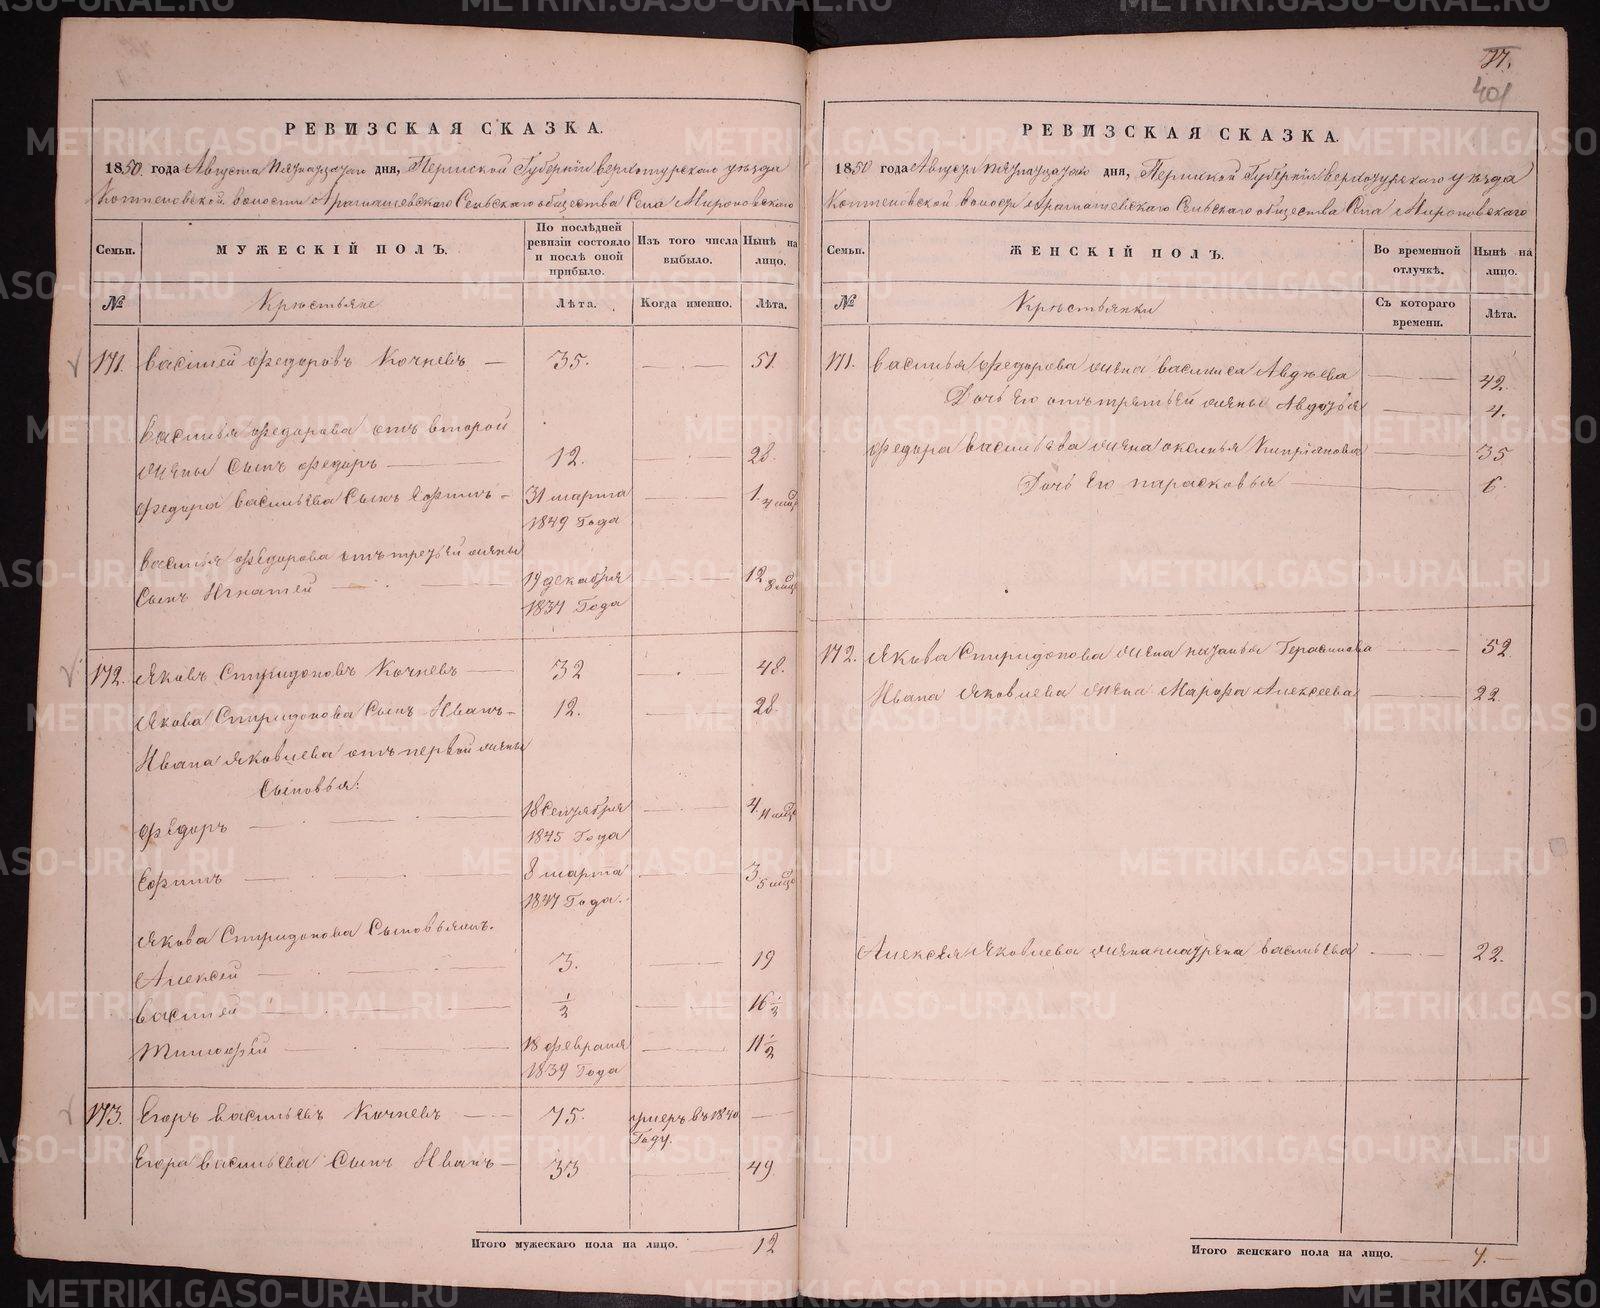 77.
401
РЕВИЗСКАЯ СКАЗКА.
1850 года Августа пятнадцатаго дня, Пермской Губерніи верхотурскаго уѣзда
волости Арамашевскаго Сельскаго общества Села Мироновскаго
Семьи.
МУЖЕСКІЙ ПОЛЪ.
По послѣдней ревизіи состояло и послѣ оной прибыло.
Изъ того числа выбыло.
Нынѣ на лицо.
№
Крестьяне
Лѣта.
Когда именно.
Лѣта.
171. василей федоровъ Кочневъ 35. 51.
василья федорова отъ второй
жены сынъ федоръ 12. 28.
федора васильева Сынъ Ефимъ 31 марта 1. 4 мцо
1849 Года
василья федорова отъ третьей жены
Сынъ Игнатей 19 декабря 12 8 мцо
1837 Года
172. Яковъ Спиридоновъ Кочневъ 32 48.
Якова Спиридонова Сынъ Иванъ 12. 28.
Ивана Яковлева отъ первой жены
Сыновья:
Федоръ 18 Сентября 4. 11 мцо
1845 Года
Ефимъ 8 марта 3. 5 мцо
1847 Года.
Якова Спиридонова Сыновьямъ.
Алексей 3. 19
василей ½ 16 ½
Тимофей 18 февраля 11 ½
1839 Года
173. Егоръ васильевъ Кочневъ 75. умеръ въ 1840
Году.
Егора васильева Сынъ Иванъ 33 49
Итого мужескаго пола на лицо. 12
РЕВИЗСКАЯ СКАЗКА.
1850 года Августа пятнадцатаго дня, Пермской Губерніи верхотурскаго уѣзда
волости Арамашевскаго Сельскаго общества Села Мироновскаго
Семьи.
ЖЕНСКІЙ ПОЛЪ.
Во временной отлучкѣ.
Нынѣ на лицо.
№
Крестьянки
Съ котораго времени.
Лѣта.
171. василья федорова жена василиса Авдѣева 42.
Дочь его отъ третьей жены Авдотья 4.
федора васильева жена оксинья Кипріанова 35
Дочь Его парасковья 6.
172. Якова Спиридонова жена наталья Герасимова 52.
Ивана Яковлева жена Марфа Алексеева 22.
Алексея Яковлева жена матрена васильева 22.
Итого женскаго пола на лицо. 7.